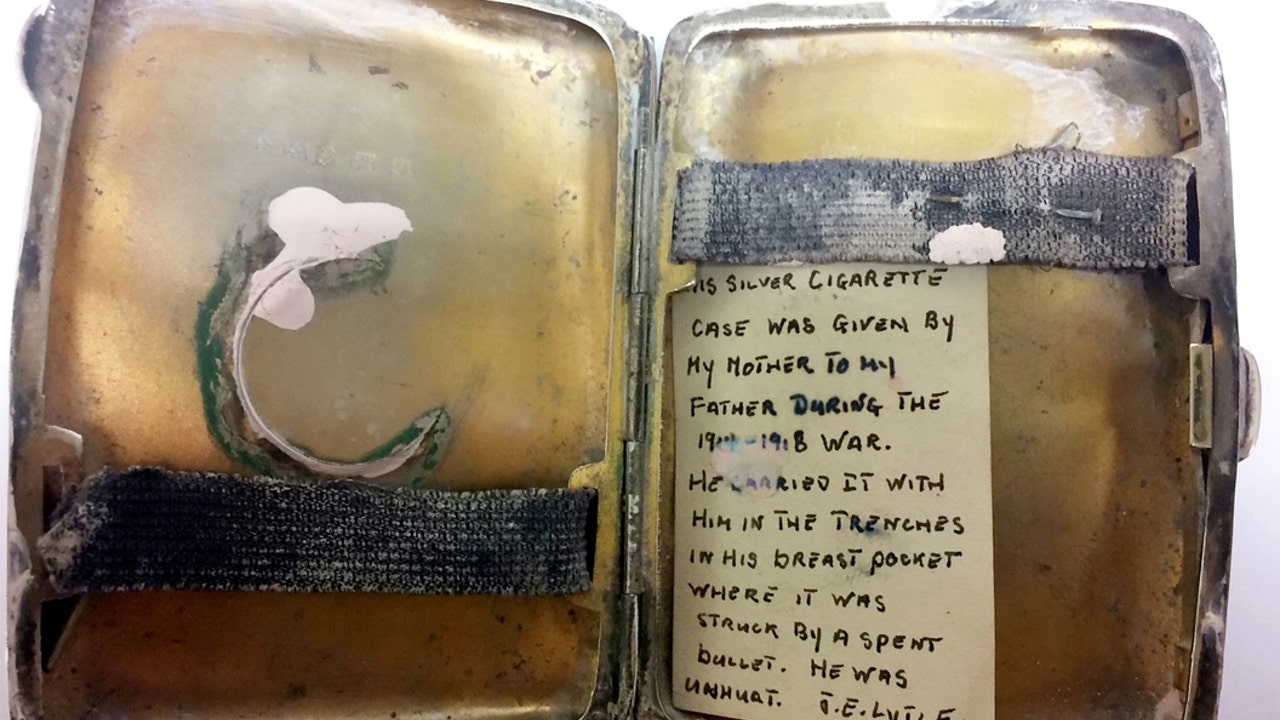 HIS SILVER CIGARETTE
CASE WAS GIVEN BY
MY MOTHER TO MY
FATHER DURING THE
1914-1918 WAR.
HE CARRIED IT WITH
HIM IN THE TRENCHES
IN HIS BREAST POCKET
WHERE IT WAS
STRUCK BY A SPENT
BULLET. HE WAS
UNHURT. J.E.